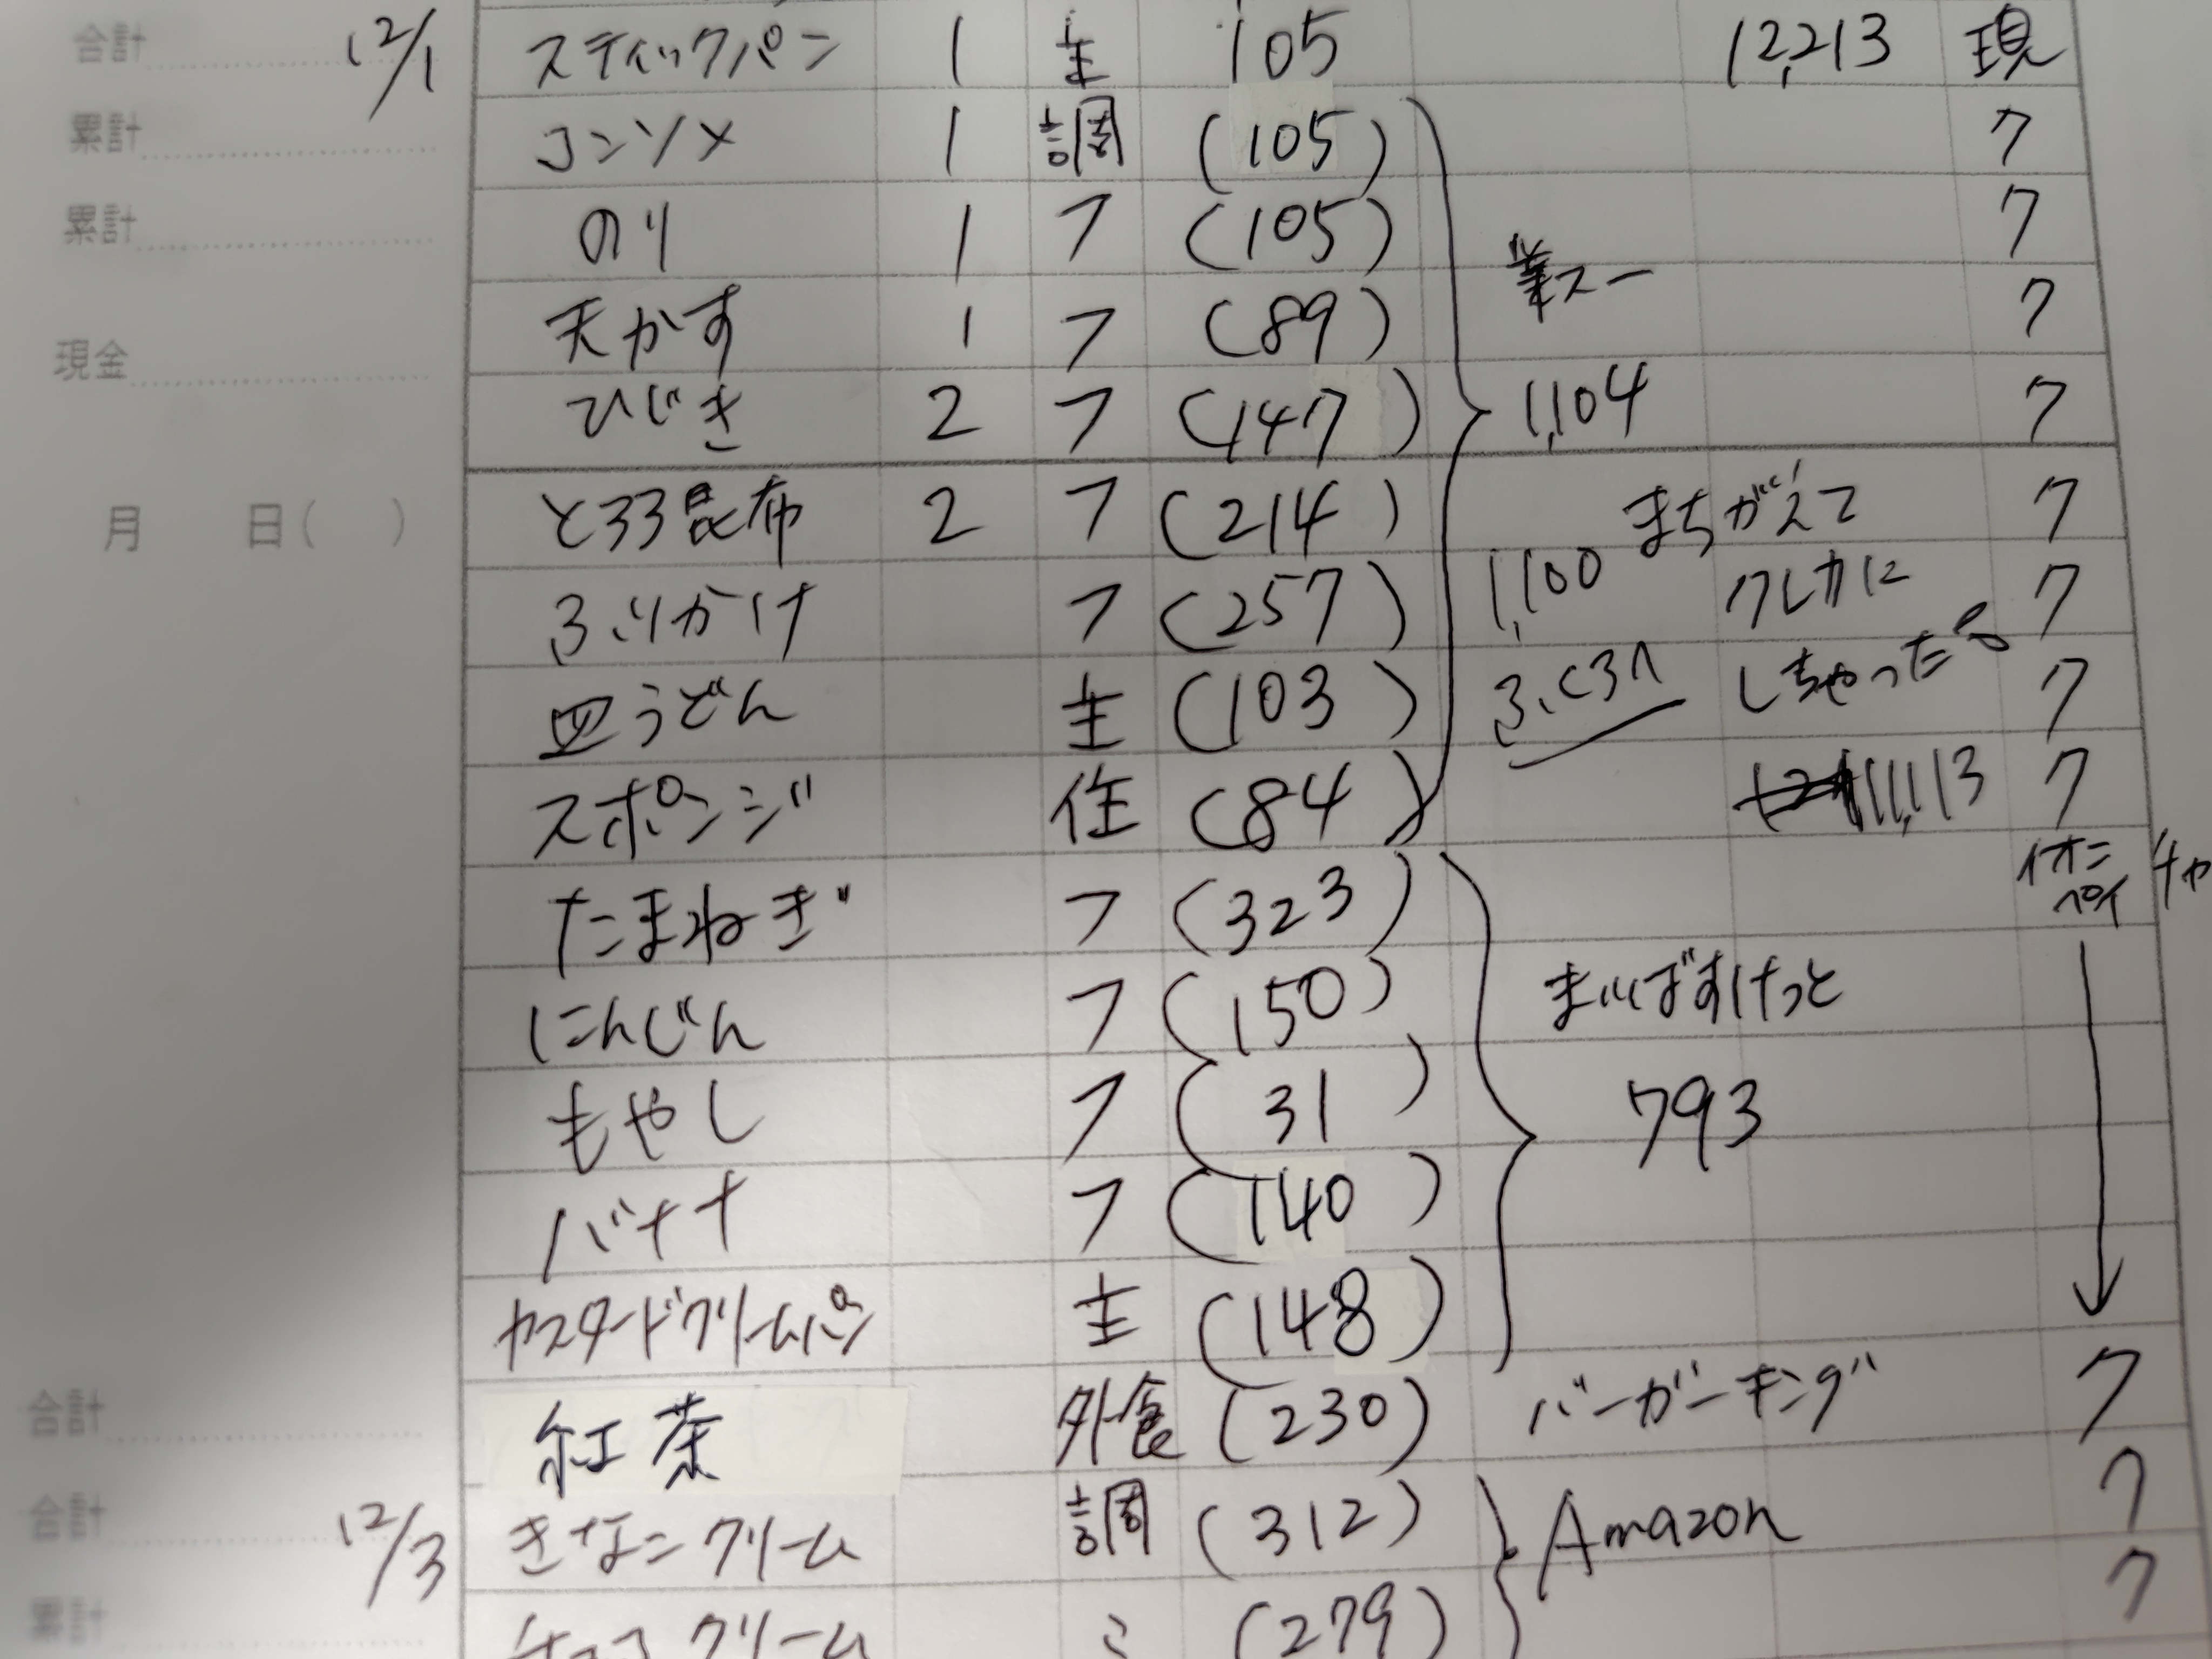 合計 12/1 スティックパン 1 主 105 12,213 現
累計 コンソメ 1 調 (105) ク
累計 のり 1 フ (105) 業スー ク
現金 天かす 1 フ (89) ク
ひじき 2 フ (147) 1,104 ク
月 日( ) とろろ昆布 2 フ (214) まちがえて ク
ふりかけ フ (257) 1,100 クレカに ク
皿うどん 主 (103) ふくろへ しちゃった ク
スポンジ 住 (84) 11,113 ク
たまねぎ フ (323) イオンペイ チャ
にんじん フ (150) まいばすけっと
もやし フ (31) 793
バナナ フ (140)
カスタードクリームパン 主 (148)
合計 紅茶 外食 (230) バーガーキング ク
合計 12/3 きなこクリーム 調 (312) Amazon ク
累計 チョコクリーム (279) ク